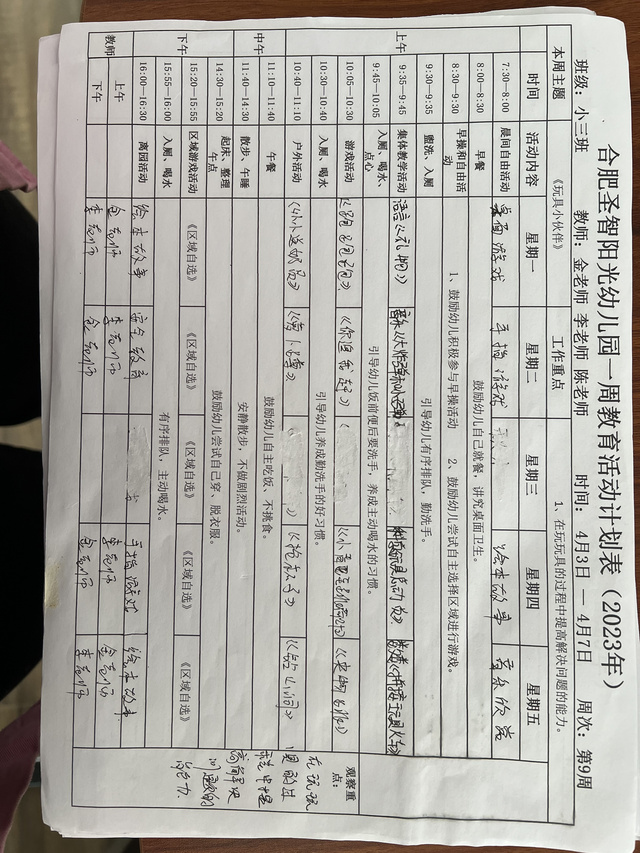 合肥圣智阳光幼儿园一周教育活动计划表（2023年）
班级：小三班 教师：金老师 李老师 陈老师 时间：4月3日 — 4月7日 周次：第9周
本周主题 《玩具小伙伴》 工作重点 1、在玩玩具的过程中提高解决问题的能力。
时间 活动内容 星期一 星期二 星期三 星期四 星期五
上午
7:30—8:00 晨间自由活动 桌面游戏 手指游戏 绘本故事 音乐欣赏
8:00—8:30 早餐 鼓励幼儿自己就餐，讲究桌面卫生。
8:30—9:30 早操和自由活动 1、鼓励幼儿积极参与早操活动 2、鼓励幼儿尝试自主选择区域进行游戏。
9:30—9:35 盥洗、入厕 引导幼儿有序排队，勤洗手。
9:35—9:45 集体教学活动 语言《礼炮》
9:45—10:05 入厕、喝水、点心 引导幼儿饭前便后要洗手，养成主动喝水的习惯。
10:05—10:30 游戏活动 《你追我赶》
10:30—10:40 入厕、喝水 引导幼儿养成勤洗手的好习惯。
10:40—11:10 户外活动 《小小送奶员》 《萝卜蹲》 《抢椅子》 《钻山洞》
中午
11:10—11:40 午餐 鼓励幼儿自主吃饭、不挑食。
11:40—14:30 散步、午睡 安静散步，不做剧烈活动。
下午
14:30—15:20 起床、整理午点 鼓励幼儿尝试自己穿、脱衣服。
15:20—15:55 区域游戏活动 《区域自选》 《区域自选》 《区域自选》 《区域自选》 《区域自选》
15:55—16:00 入厕、喝水 有序排队，主动喝水。
16:00—16:30 离园活动 绘本故事 安全教育 手指游戏 绘本故事
教师 上午 金老师 李老师 李老师 金老师
下午 李老师 金老师 金老师 李老师
观察重点：
在玩玩具的过程中提高解决问题的能力